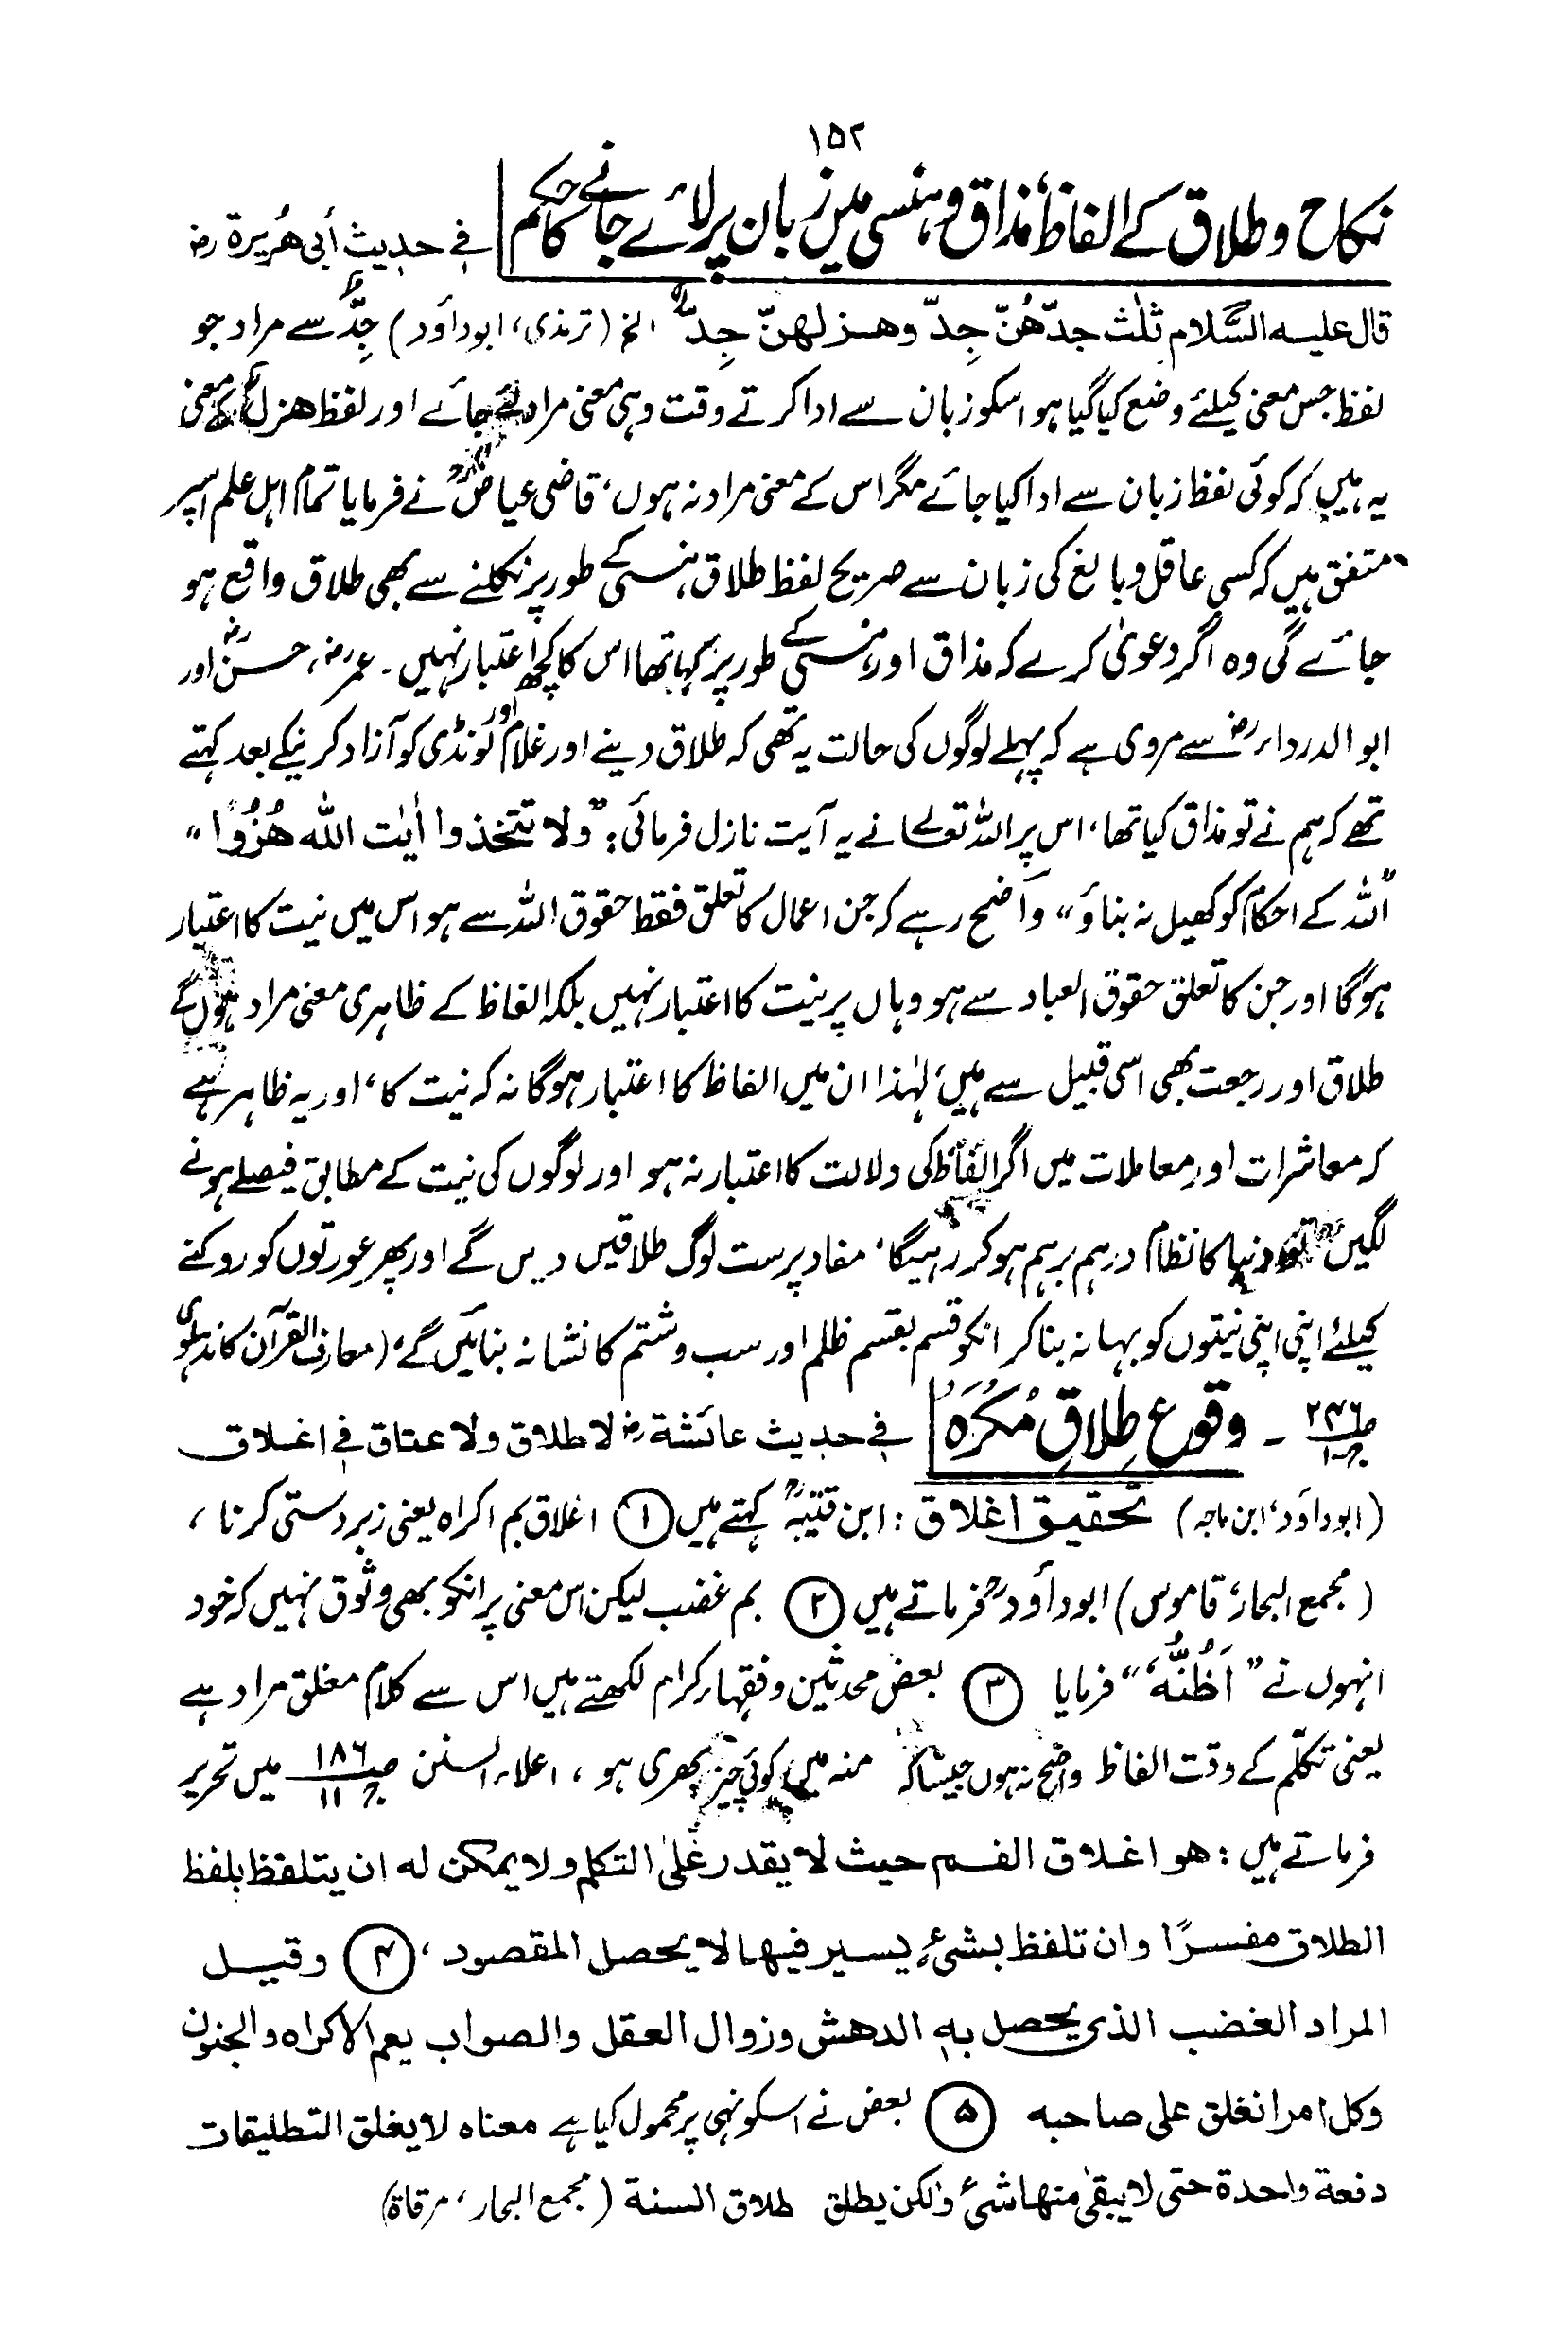 ۱۵۲
نکاح و طلاق کے الفاظ، مذاق و ہنسی میں زبان پر لائے جانے کا حکم فی حدیث أبی هُریرة رضہ
قال علیه السَّلام ثلٰث جدّهُنّ جِدّ وهزلهنّ جِدّ الخ (ترمذی، ابوداؤد) جِدٌّ سے مراد جو
لفظ جس معنی کیلئے وضع کیا گیا ہو اسکو زبان سے ادا کرتے وقت وہی معنی مراد لئے جائے اور لفظ هزلٌ کے معنی
یہ ہیں کہ کوئی لفظ زبان سے ادا کیا جائے مگر اس کے معنی مراد نہ ہوں، قاضی عیاضؒ نے فرمایا تمام اہل علم اسپر
متفق ہیں کہ کسی عاقل و بالغ کی زبان سے صریح لفظ طلاق، ہنسی کے طور پر نکلنے سے بھی طلاق واقع ہو
جائے گی وہ اگر دعویٰ کرے کہ مذاق اور ہنسی کے طور پر کہا تھا اس کا کچھ اعتبار نہیں ۔ عمر رضہ، حسنؓ اور
ابو الدرداء رضہ سے مروی ہے کہ پہلے لوگوں کی حالت یہ تھی کہ طلاق دینے اور غلام اور لونڈی کو آزاد کرنیکے بعد کہتے
تھے کہ ہم نے تو مذاق کیا تھا، اس پر اللہ تعالےٰ نے یہ آیت نازل فرمائی: ”ولا تتخذوا أیٰت الله هُزُوًا“
”اللہ کے احکام کو کھیل نہ بناؤ“ واضح رہے کہ جن اعمال کا تعلق فقط حقوق اللہ سے ہو اس میں نیت کا اعتبار
ہوگا اور جن کا تعلق حقوق العباد سے ہو وہاں پر نیت کا اعتبار نہیں بلکہ الفاظ کے ظاہری معنی مراد ہوں گے
طلاق اور رجعت بھی اسی قبیل سے ہیں، لہٰذا ان میں الفاظ کا اعتبار ہوگا نہ کہ نیت کا، اور یہ ظاہر ہے
کہ معاشرات اور معاملات میں اگر الفاظ کی دلالت کا اعتبار نہ ہو اور لوگوں کی نیت کے مطابق فیصلے ہونے
لگیں تو دنیا کا نظام درہم برہم ہو کر رہیگا، مفاد پرست لوگ طلاقیں دیں گے اور پھر عورتوں کو روکنے
کیلئے اپنی اپنی نیتوں کو بہانہ بنا کر انکو قسم بقسم ظلم اور سب و شتم کا نشانہ بنائیں گے، (معارف القرآن کاندہلوی
ص۲۴۶ ج۱ ۔ وقوع طلاقِ مُکْرَہ فی حدیث عائشة رضہ لا طلاق ولا عتاق فی اغلاق
(ابوداؤد، ابن ماجہ) تحقیق اغلاق : ابن قتیبہؒ کہتے ہیں ① اغلاق بم اکراہ یعنی زبردستی کرنا ،
(مجمع البحار، قاموس) ابوداؤدؒ فرماتے ہیں ② بم غضب لیکن اس معنی پر انکو بھی وثوق نہیں کہ خود
انہوں نے ”اَظُنُّهٗ“ فرمایا ③ بعض محدثین و فقہاء کرام لکھتے ہیں اس سے کلام مغلق مراد ہے
یعنی تکلّم کے وقت الفاظ واضح نہ ہوں جیساکہ منہ میں کوئی چیز بھری ہو ، اعلاء السنن ص۱۸۶ ج۱۱ میں تحریر
فرماتے ہیں : هو اغلاق الفم حیث لا یقدر علیٰ التکلم ولا یمکن له ان یتلفظ بلفظ
الطلاق مفسرًا وان تلفظ بشیءٍ یسیر فیها لا یحصل المقصود ، ④ وقیل
المراد الغضب الذی یحصل به الدهش وزوال العقل والصواب یعم الاکراه والجنون
وکل امر انغلق علی صاحبه ⑤ بعض نے اسکو نہی پر محمول کیا ہے معناه لا یغلق التطلیقات
دفعة واحدة حتی لا یبقیٰ منها شیءٌ ولکن یطلق طلاق السنة (مجمع البحار، مرقاة)